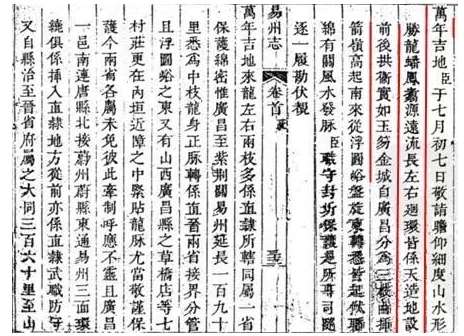 萬年吉地臣于七月初七日敬詣瞻仰細度山水形
勝龍蟠鳳翥源遠流長左右迴環皆係天造地設
前後拱衞實如玉笏金城自廣昌分為三枝曲排
箭嶺高起南來從浮圖峪盤旋東轉悉皆起伏聯
綿有關風水發脉臣職守封圻保護是所專司隨
逐一履勘伏覩
易州志
卷首
萬年吉地來龍左右兩枝多係直隷所轄同屬一省
保護綿密惟廣昌至紫荆關易州延長一百九十
里悉為中枝龍身正脉轉係直晉兩省接界分管
且浮圖峪之東又有山西廣昌縣之草橋店等七
村莊更在內垣近障之中緊貼龍脉尤當敬謹保
護今兩省各屬未免彼此牽制呼應不靈且廣昌
一邑南連唐縣北接蔚州蔚縣東通易州三面環
繞俱係插入直隷地方從前亦係直隷武職防守
又自縣治至晉省府屬之大同三百六十里至山